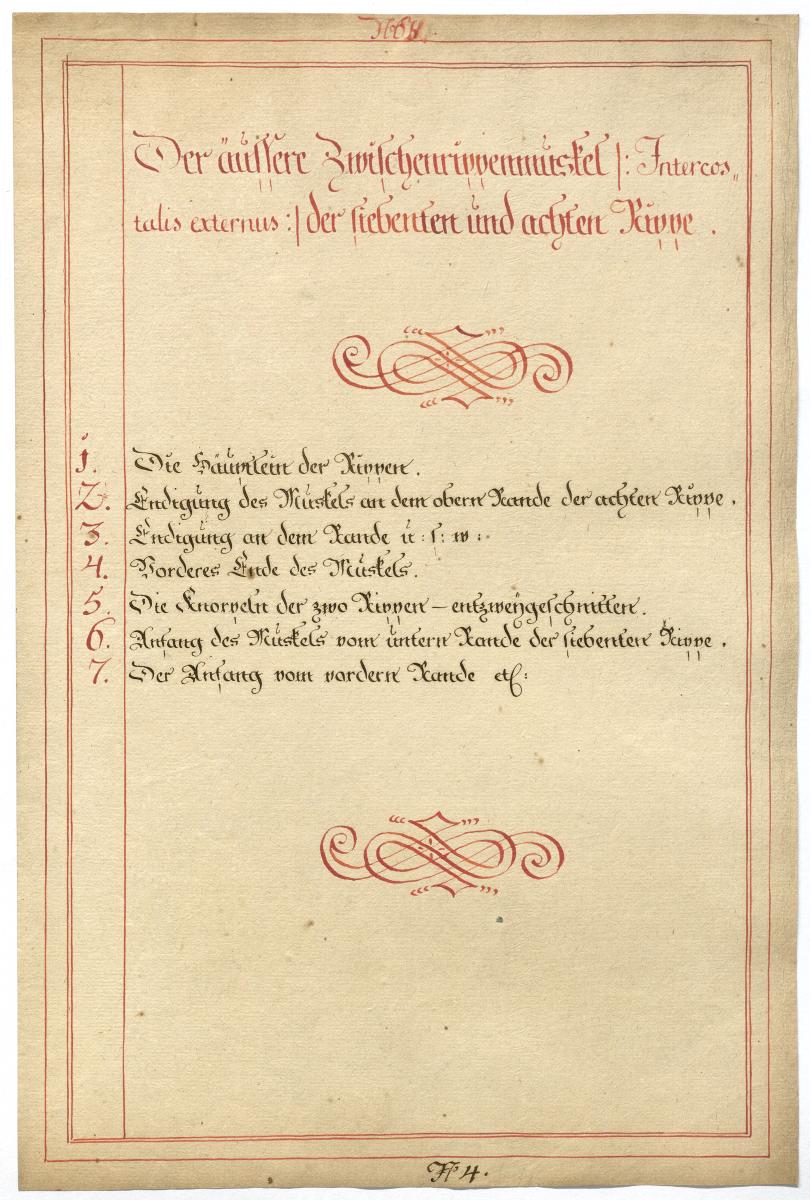 Der äussere Zwischenrippenmuskel |: Intercos„
talis externus :| der siebenten und achten Rippe .
1. Die Häuptlein der Rippen .
2. Endigung des Muskels an dem obern Rande der achten Rippe .
3. Endigung an dem Rande u : s : w :
4. Vorderes Ende des Muskels .
5. Die Knorpeln der zwo Rippen – entzweÿgeschnitten .
6. Anfang des Muskels vom untern Rande der siebenten Rippe .
7. Der Anfang vom vordern Rande etc: